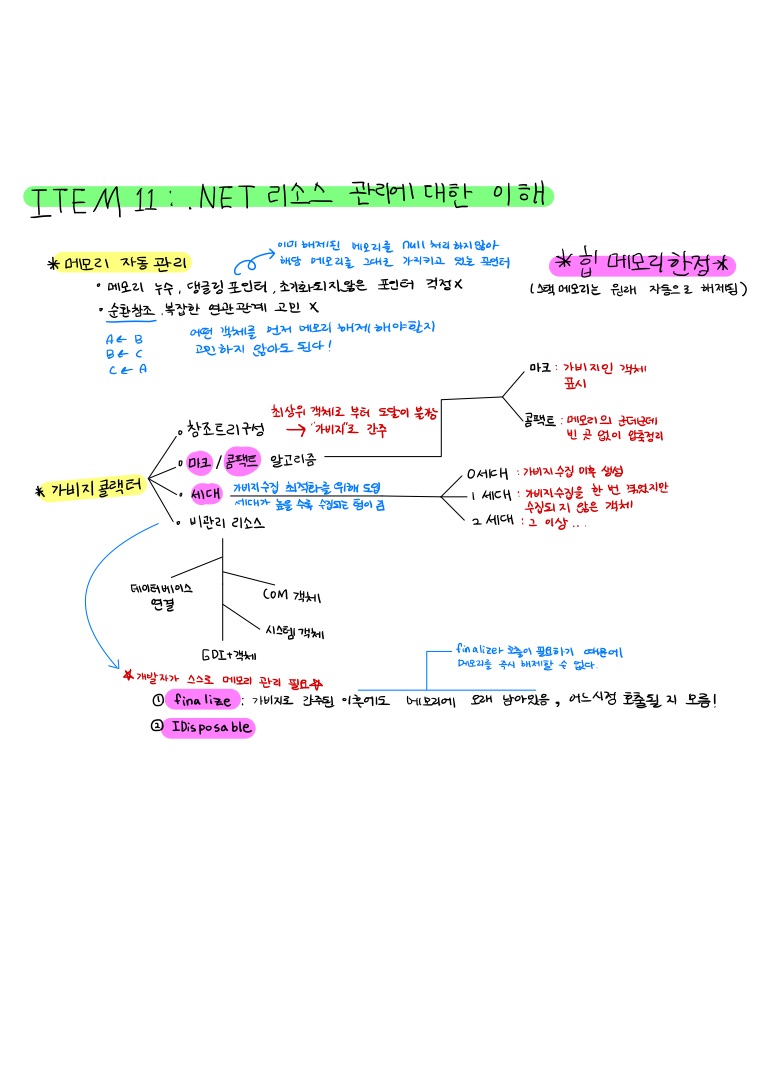 ITEM 11 : .NET 리소스 관리에 대한 이해
* 메모리 자동관리
이미 해제된 메모리를 null 처리하지않아
해당 메모리를 그대로 가지키고 있는 포인터
* 힙 메모리한정 *
(스택메모리는 원래 자동으로 해제됨)
• 메모리 누수, 댕글링 포인터, 초기화되지않은 포인터 걱정 X
• 순환참조. 복잡한 연관관계 고민 X
A ← B
B ← C
C ← A
어떤 객체를 먼저 메모리 해제해야할지
고민하지 않아도 된다!
* 가비지 콜랙터
• 참조트리구성
최상위 객체로 부터 도달이 불가
→ "가비지"로 간주
• 마크 / 콤팩트 알고리즘
마크 : 가비지인 객체
표시
콤팩트 : 메모리의 군데군데
빈 곳 없이 압축정리
• 세대
가비지수집 최적화를 위해 도입
세대가 높을 수록 수집되는 텀이 큼
0세대 : 가비지수집 이후 생성
1 세대 : 가비지수집을 한 번 겪었지만
수집되지 않은 객체
2 세대 : 그 이상...
• 비관리 리소스
데이터베이스
연결
COM 객체
시스템 객체
GDI+객체
☆개발자가 스스로 메모리 관리 필요☆
finalize 호출이 필요하기 때문에
메모리를 즉시 해제할 수 없다.
① finalize : 가비지로 간주된 이후에도 메모리에 오래 남아있음, 어느시점 호출될 지 모름!
② IDisposable